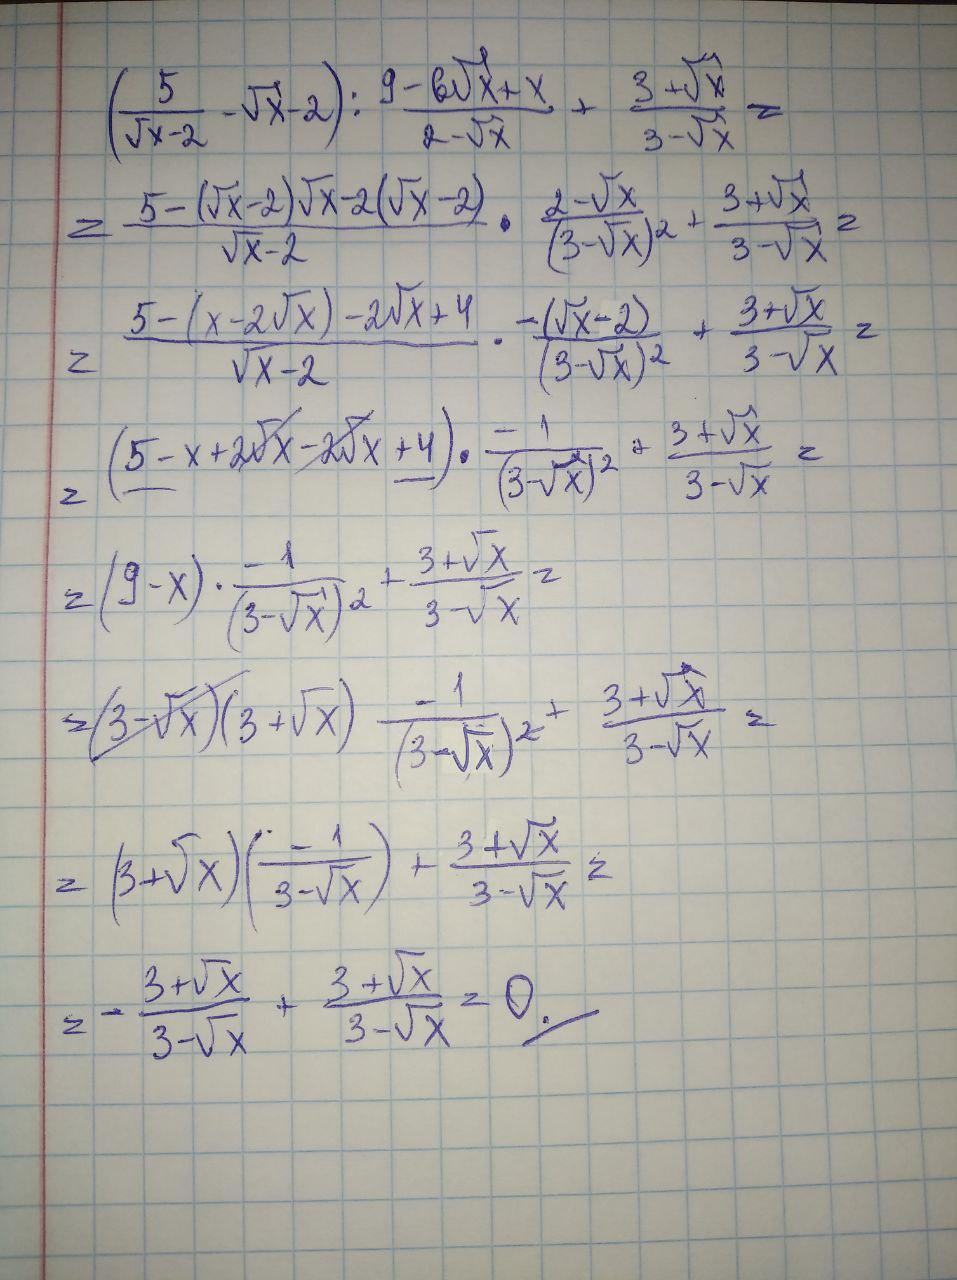 (5/(√x-2) - √x - 2) : (9-6√x+x)/(2-√x) + (3+√x)/(3-√x) =
= (5-(√x-2)√x-2(√x-2))/(√x-2) · (2-√x)/(3-√x)² + (3+√x)/(3-√x) =
= (5-(x-2√x)-2√x+4)/(√x-2) · (-(√x-2))/(3-√x)² + (3+√x)/(3-√x) =
= (5-x+2√x-2√x+4) · (-1)/(3-√x)² + (3+√x)/(3-√x) =
= (9-x) · (-1)/(3-√x)² + (3+√x)/(3-√x) =
= (3-√x)(3+√x) (-1)/(3-√x)² + (3+√x)/(3-√x) =
= (3+√x)((-1)/(3-√x)) + (3+√x)/(3-√x) =
= - (3+√x)/(3-√x) + (3+√x)/(3-√x) = 0.